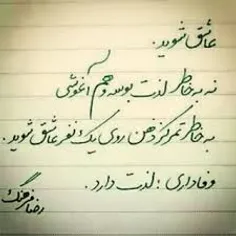 عاشق شوید.
نه به خاطر لذت بوسه و هم آغوشی
به خاطر تمرکز ذهن روی یک نفر عاشق شوید.
وفاداری؛ لذت دارد.
رضا فرهنگ